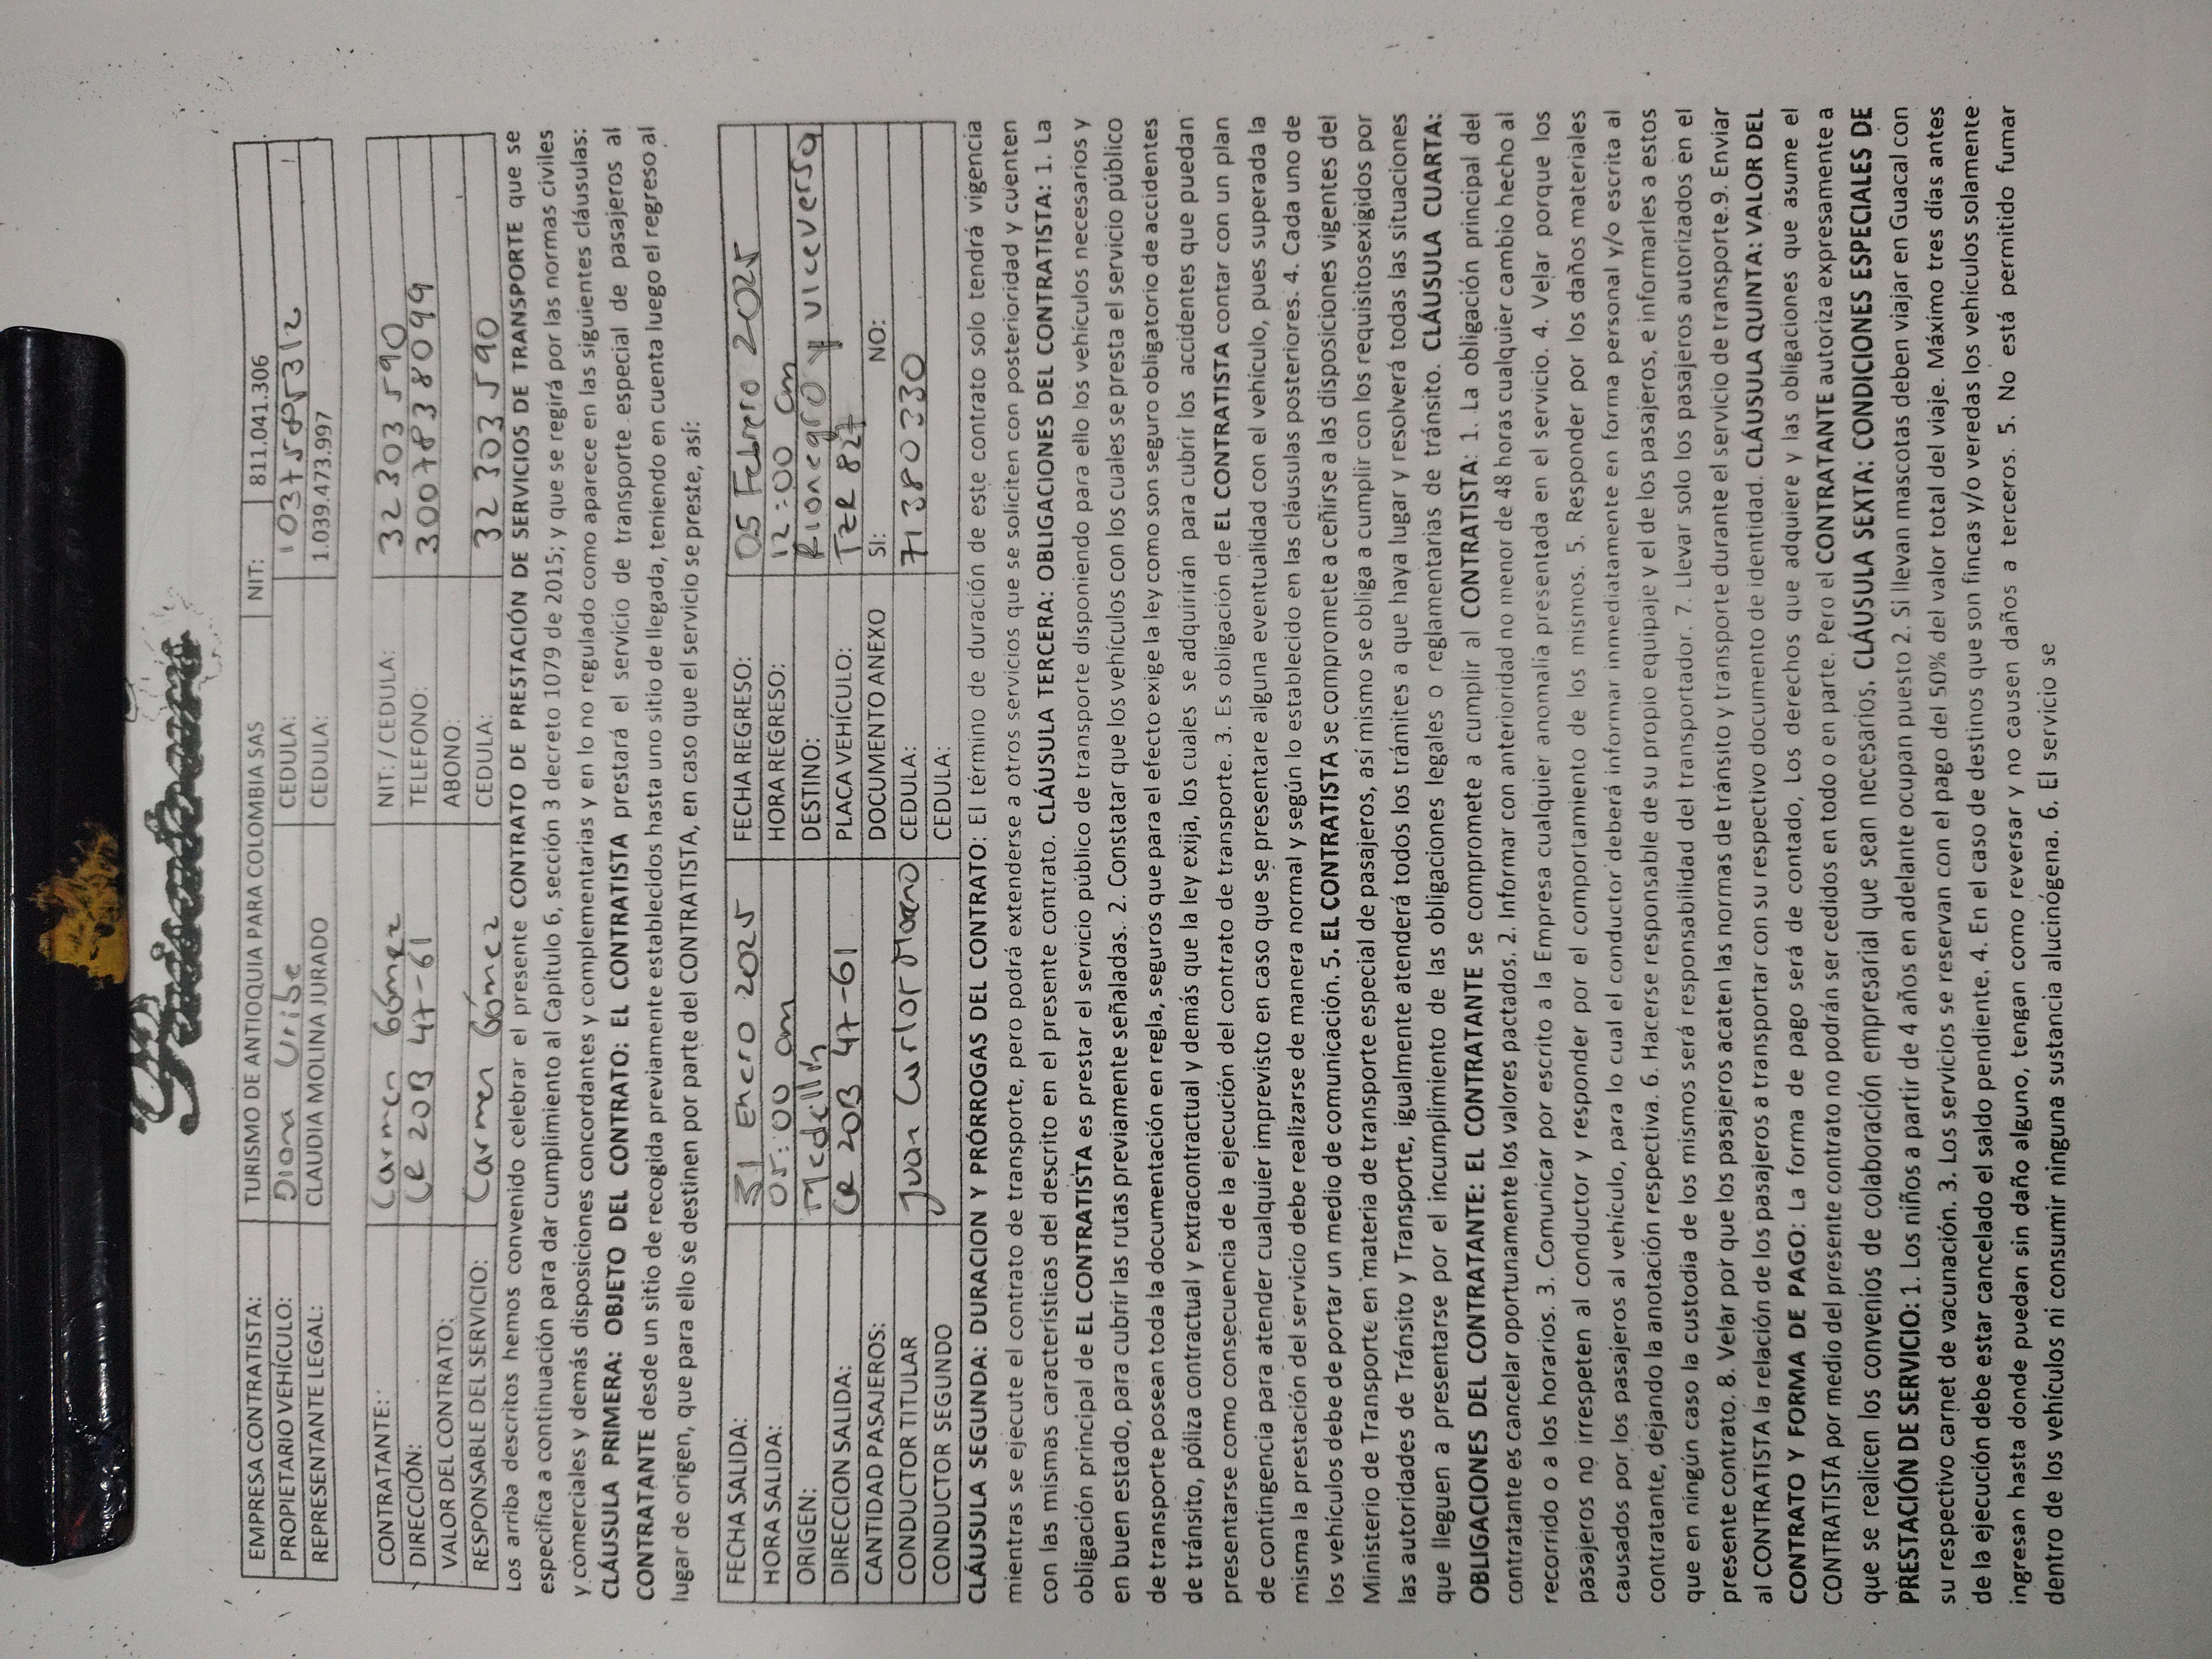 EMPRESA CONTRATISTA: TURISMO DE ANTIOQUIA PARA COLOMBIA SAS NIT: 811.041.306
PROPIETARIO VEHÍCULO: Diana Uribe CEDULA: 1037585312
REPRESENTANTE LEGAL: CLAUDIA MOLINA JURADO CEDULA: 1.039.473.997
CONTRATANTE: Carmen Gómez NIT: / CEDULA: 32 303 590
DIRECCIÓN: Cr 20B 47-61 TELEFONO: 3007838099
VALOR DEL CONTRATO: ABONO:
RESPONSABLE DEL SERVICIO: Carmen Gómez CEDULA: 32 303 590
Los arriba descritos hemos convenido celebrar el presente CONTRATO DE PRESTACIÓN DE SERVICIOS DE TRANSPORTE que se
especifica a continuación para dar cumplimiento al Capítulo 6, sección 3 decreto 1079 de 2015; y que se regirá por las normas civiles
y comerciales y demás disposiciones concordantes y complementarias y en lo no regulado como aparece en las siguientes cláusulas:
CLÁUSULA PRIMERA: OBJETO DEL CONTRATO: EL CONTRATISTA prestará el servicio de transporte especial de pasajeros al
CONTRATANTE desde un sitio de recogida previamente establecidos hasta uno sitio de llegada, teniendo en cuenta luego el regreso al
lugar de origen, que para ello se destinen por parte del CONTRATISTA, en caso que el servicio se preste, así:
FECHA SALIDA: 31 Enero 2025 FECHA REGRESO: 05 Febrero 2025
HORA SALIDA: 05:00 am HORA REGRESO: 12:00 am
ORIGEN: Medellín DESTINO: Rionegro y viceversa
DIRECCION SALIDA: Cr 20B 47-61 PLACA VEHÍCULO: TZR 827
CANTIDAD PASAJEROS: DOCUMENTO ANEXO SI: NO:
CONDUCTOR TITULAR Juan Carlos CEDULA: 71380330
CONDUCTOR SEGUNDO CEDULA:
CLÁUSULA SEGUNDA: DURACION Y PRÓRROGAS DEL CONTRATO: El término de duración de este contrato solo tendrá vigencia
mientras se ejecute el contrato de transporte, pero podrá extenderse a otros servicios que se soliciten con posterioridad y cuenten
con las mismas características del descrito en el presente contrato. CLÁUSULA TERCERA: OBLIGACIONES DEL CONTRATISTA: 1. La
obligación principal de EL CONTRATISTA es prestar el servicio público de transporte disponiendo para ello los vehículos necesarios y
en buen estado, para cubrir las rutas previamente señaladas. 2. Constatar que los vehículos con los cuales se presta el servicio público
de transporte posean toda la documentación en regla, seguros que para el efecto exige la ley como son seguro obligatorio de accidentes
de tránsito, póliza contractual y extracontractual y demás que la ley exija, los cuales se adquirirán para cubrir los accidentes que puedan
presentarse como consecuencia de la ejecución del contrato de transporte. 3. Es obligación de EL CONTRATISTA contar con un plan
de contingencia para atender cualquier imprevisto en caso que se presentare alguna eventualidad con el vehículo, pues superada la
misma la prestación del servicio debe realizarse de manera normal y según lo establecido en las cláusulas posteriores. 4. Cada uno de
los vehículos debe de portar un medio de comunicación. 5. EL CONTRATISTA se compromete a ceñirse a las disposiciones vigentes del
Ministerio de Transporte en materia de transporte especial de pasajeros, así mismo se obliga a cumplir con los requisitosexigidos por
las autoridades de Tránsito y Transporte, igualmente atenderá todos los trámites a que haya lugar y resolverá todas las situaciones
que lleguen a presentarse por el incumplimiento de las obligaciones legales o reglamentarias de tránsito. CLÁUSULA CUARTA:
OBLIGACIONES DEL CONTRATANTE: EL CONTRATANTE se compromete a cumplir al CONTRATISTA: 1. La obligación principal del
contratante es cancelar oportunamente los valores pactados. 2. Informar con anterioridad no menor de 48 horas cualquier cambio hecho al
recorrido o a los horarios. 3. Comunicar por escrito a la Empresa cualquier anomalía presentada en el servicio. 4. Velar porque los
pasajeros no irrespeten al conductor y responder por el comportamiento de los mismos. 5. Responder por los daños materiales
causados por los pasajeros al vehículo, para lo cual el conductor deberá informar inmediatamente en forma personal y/o escrita al
contratante, dejando la anotación respectiva. 6. Hacerse responsable de su propio equipaje y el de los pasajeros, e informarles a estos
que en ningún caso la custodia de los mismos será responsabilidad del transportador. 7. Llevar solo los pasajeros autorizados en el
presente contrato. 8. Velar por que los pasajeros acaten las normas de tránsito y transporte durante el servicio de transporte.9. Enviar
al CONTRATISTA la relación de los pasajeros a transportar con su respectivo documento de identidad. CLÁUSULA QUINTA: VALOR DEL
CONTRATO Y FORMA DE PAGO: La forma de pago será de contado, Los derechos que adquiere y las obligaciones que asume el
CONTRATISTA por medio del presente contrato no podrán ser cedidos en todo o en parte. Pero el CONTRATANTE autoriza expresamente a
que se realicen los convenios de colaboración empresarial que sean necesarios. CLÁUSULA SEXTA: CONDICIONES ESPECIALES DE
PRESTACIÓN DE SERVICIO: 1. Los niños a partir de 4 años en adelante ocupan puesto 2. Si llevan mascotas deben viajar en Guacal con
su respectivo carnet de vacunación. 3. Los servicios se reservan con el pago del 50% del valor total del viaje. Máximo tres días antes
de la ejecución debe estar cancelado el saldo pendiente. 4. En el caso de destinos que son fincas y/o veredas los vehículos solamente
ingresan hasta donde puedan sin daño alguno, tengan como reversar y no causen daños a terceros. 5. No está permitido fumar
dentro de los vehículos ni consumir ninguna sustancia alucinógena. 6. El servicio se